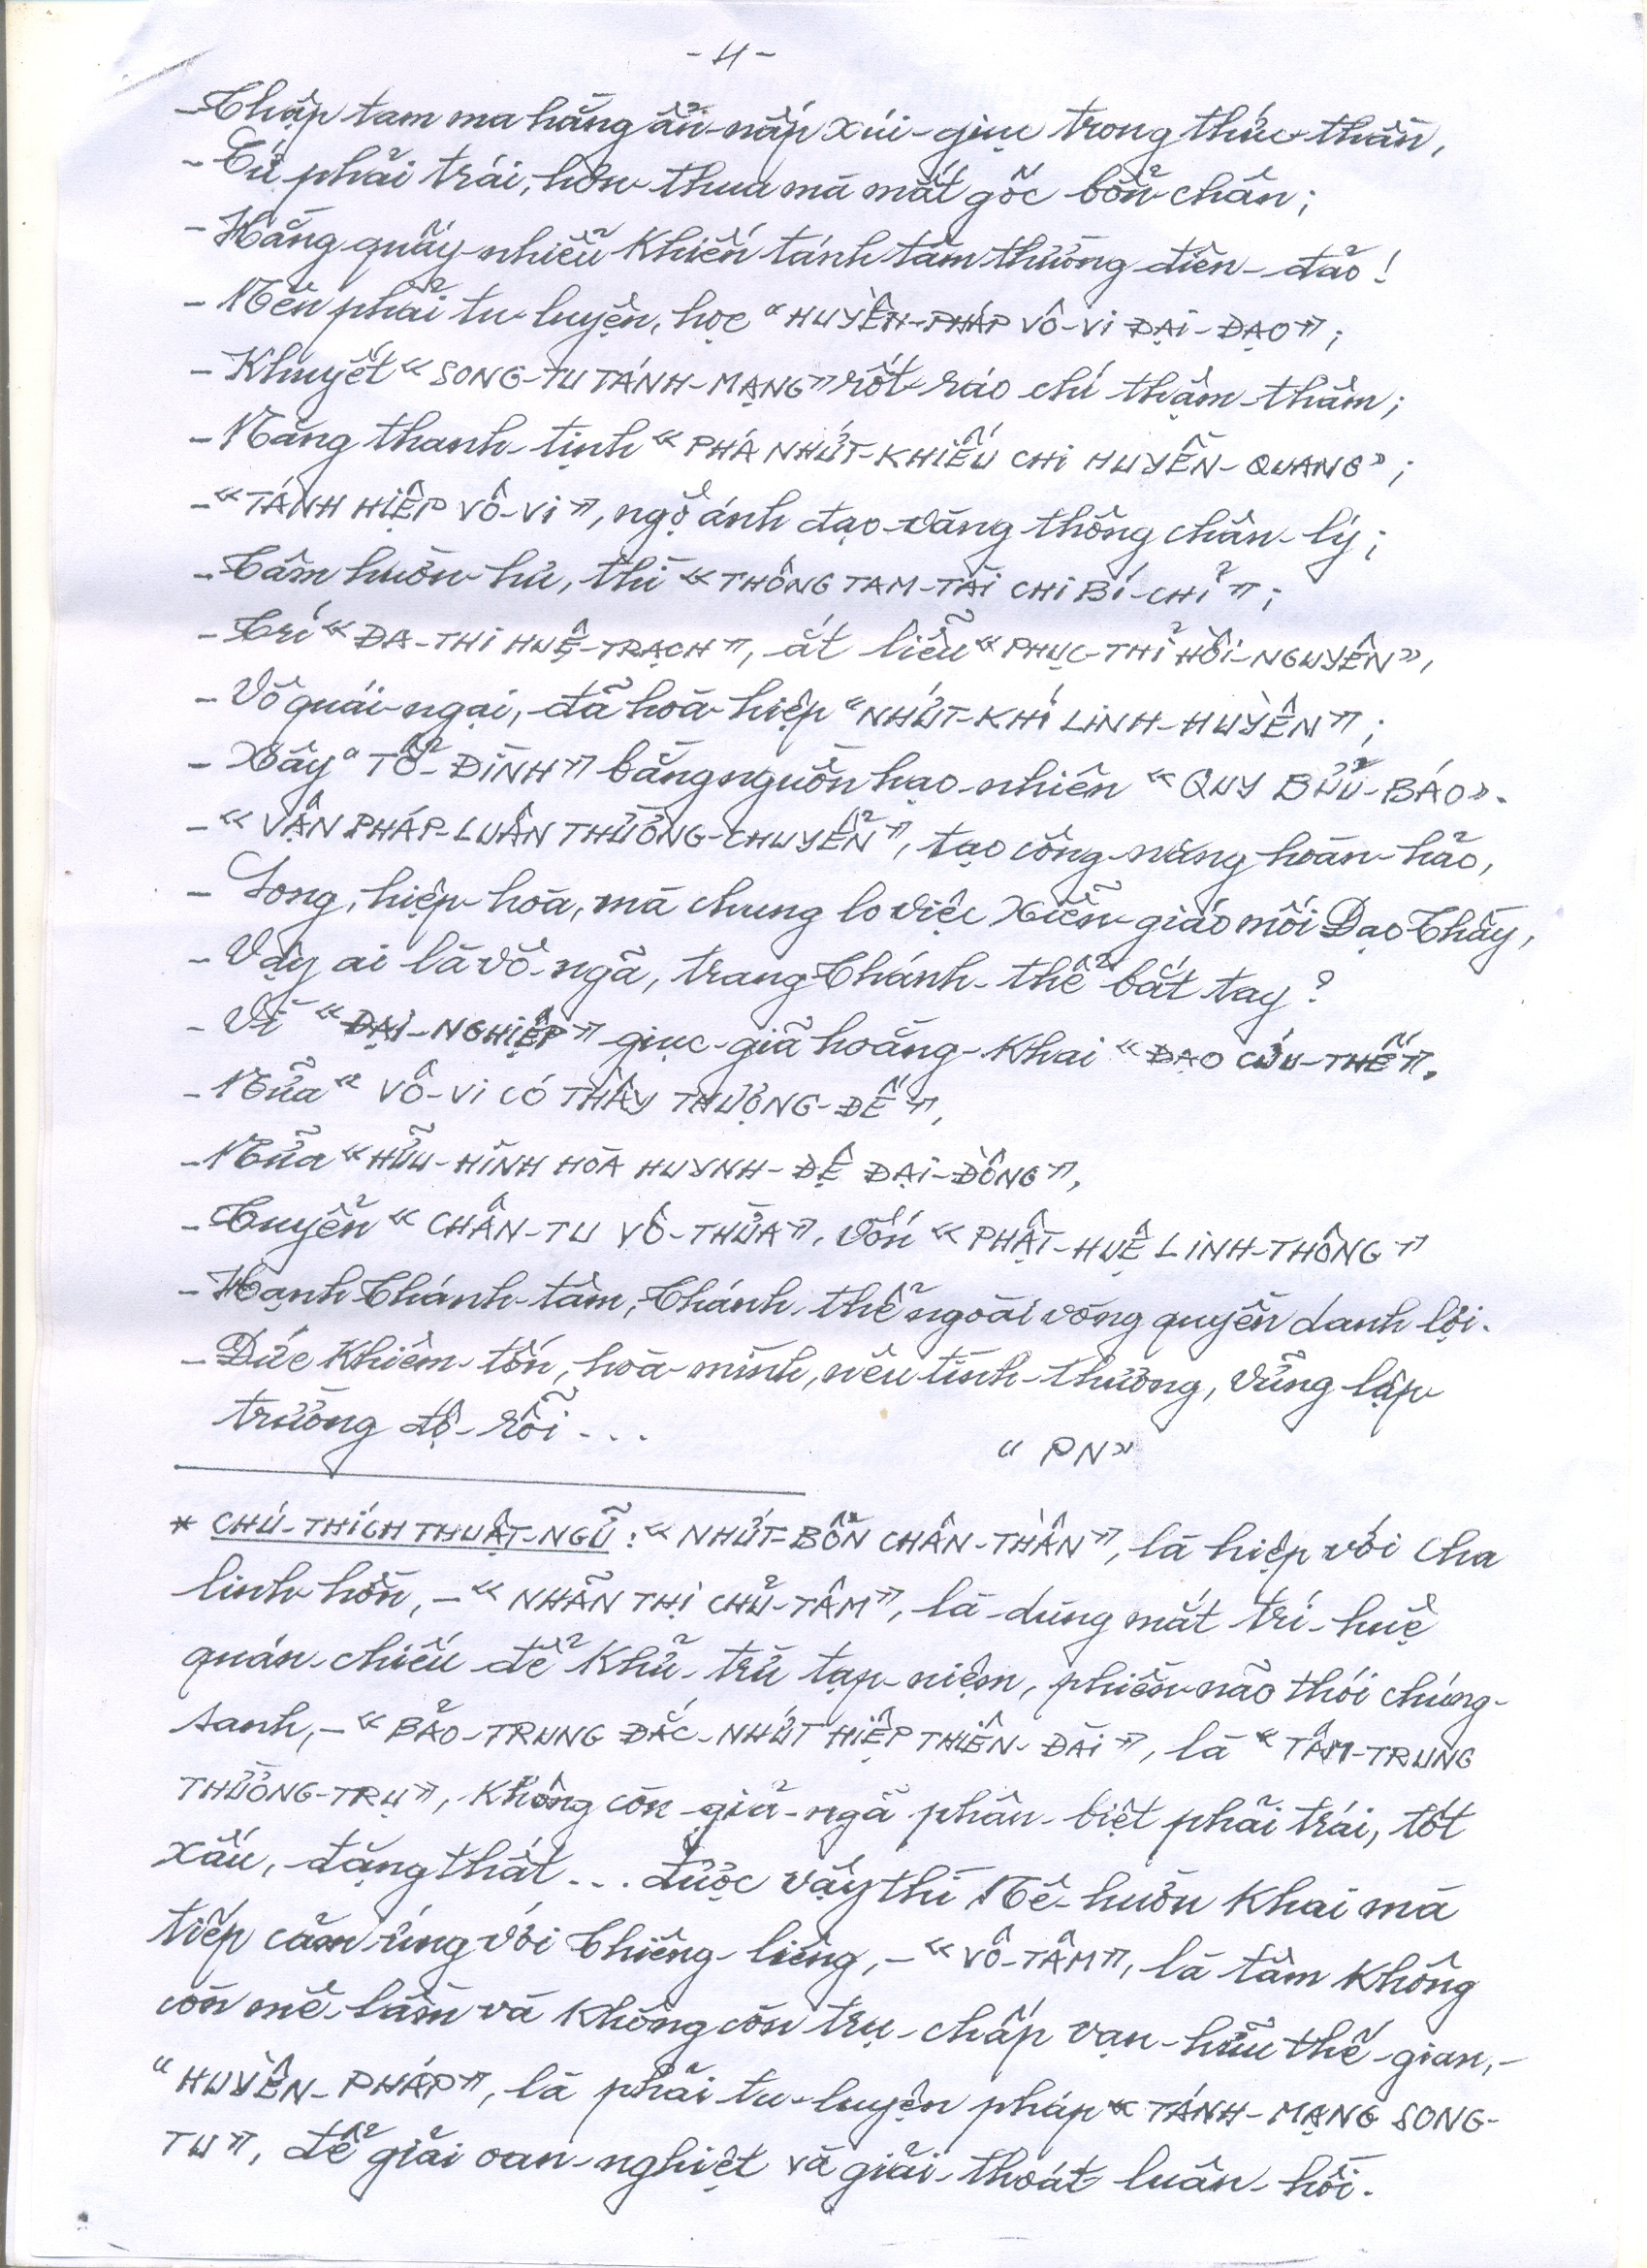 - 4 -
- Thập tam ma hằng ẩn-nấp xúi-giục trong thức-thần,
- Cứ phải trái, hơn-thua mà mất gốc bổn-chân;
- Hằng quấy-nhiễu khiến tánh tâm thường điên-đảo!
- Nên phải tu-luyện, học "HUYỀN-PHÁP VÔ-VI ĐẠI-ĐẠO";
- Khuyết "SONG-TU TÁNH-MẠNG" rốt-ráo chí thậm-thâm;
- Năng thanh-tịnh "PHÁ NHỨT-KHIẾU CHI HUYỀN-QUANG";
- "TÁNH HIỆP VÔ-VI", ngộ ánh đạo-vàng thông chân-lý;
- Tâm huờn-hư, thì "THÔNG TAM-TÀI CHI BÍ-CHỈ";
- Trí "ĐA-THI HUỆ-TRẠCH", ắt liễu "PHỤC-THỈ HỒI-NGUYÊN",
- Vô quái-ngại, đã hoà-hiệp "NHỨT-KHÍ LINH-HUYỀN";
- Xây "TỔ-ĐÌNH" bằng nguồn hạo-nhiên "QUY BỬU-BÁO".
- "VẬN PHÁP-LUÂN THƯỜNG-CHUYỂN", tạo công-năng hoàn-hảo,
- Song, hiệp-hoà, mà chung lo việc xiển-giáo mối Đạo Thầy,
- Vậy ai là vô-ngã, trang Thánh-thể bắt tay?
- Vì "ĐẠI-NGHIỆP" giục-giã hoằng-khai "ĐẠO CỨU-THẾ".
- Nửa "VÔ-VI CÓ THẦY THƯỢNG-ĐẾ",
- Nửa "HỮU-HÌNH HÒA HUYNH-ĐỆ ĐẠI-ĐỒNG",
- Tuyển "CHÂN-TU VÔ-THỪA", vốn "PHẬT-HUỆ LINH-THÔNG"
- Hạnh Thánh-tâm, Thánh-thể ngoài vòng quyền danh lợi.
- Đức khiêm-tốn, hoà-mình, nêu tình-thương, vững lập
trường độ-rỗi...
"PN"
* CHÚ-THÍCH THUẬT-NGỮ: "NHỨT-BỔN CHÂN-THẦN", là hiệp với Cha
linh-hồn, - "NHÃN THỊ CHỦ-TÂM", là dùng mắt trí-huệ
quán-chiếu để khử-trừ tạp-niệm, phiền-não thói chúng-
sanh, - "BẢO-TRUNG ĐẮC-NHỨT HIỆP THIÊN-ĐÀI", là "TÂM-TRUNG
THƯỜNG-TRỤ", không còn giả-ngã phân-biệt phải trái, tốt
xấu, đặng thất... được vậy thì Nê-huờn khai mà
tiếp cảm-ứng với Thiêng-liêng, - "VÔ-TÂM", là tâm không
còn mê-lầm và không còn trụ-chấp vạn-hữu thế-gian, -
"HUYỀN-PHÁP", là phải tu-luyện pháp "TÁNH-MẠNG SONG-
TU", để giải oan-nghiệt và giải-thoát luân-hồi.